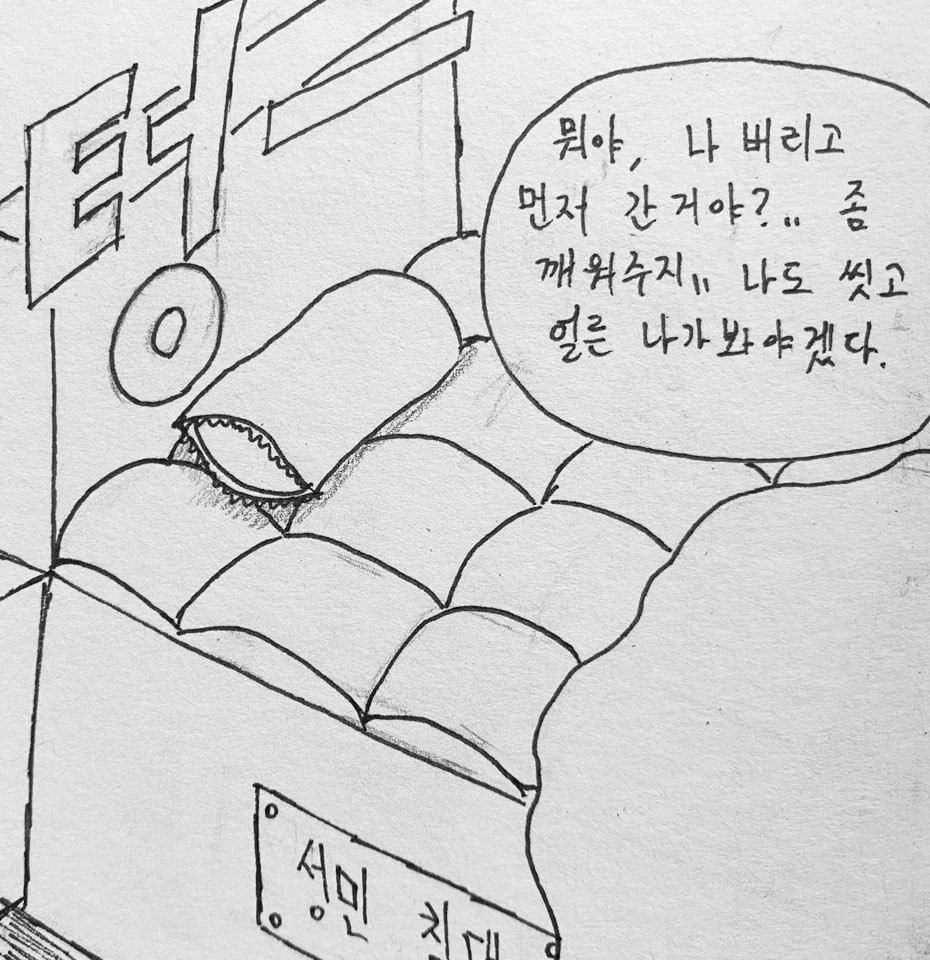 터즈
뭐야, 나 버리고
먼저 간 거야?.. 좀
깨워주지.. 나도 씻고
얼른 나가봐야겠다.
성민 침대